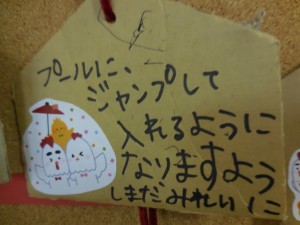 プールに、
ジャンプして
入れるように
なりますよう
に
しまだみれい